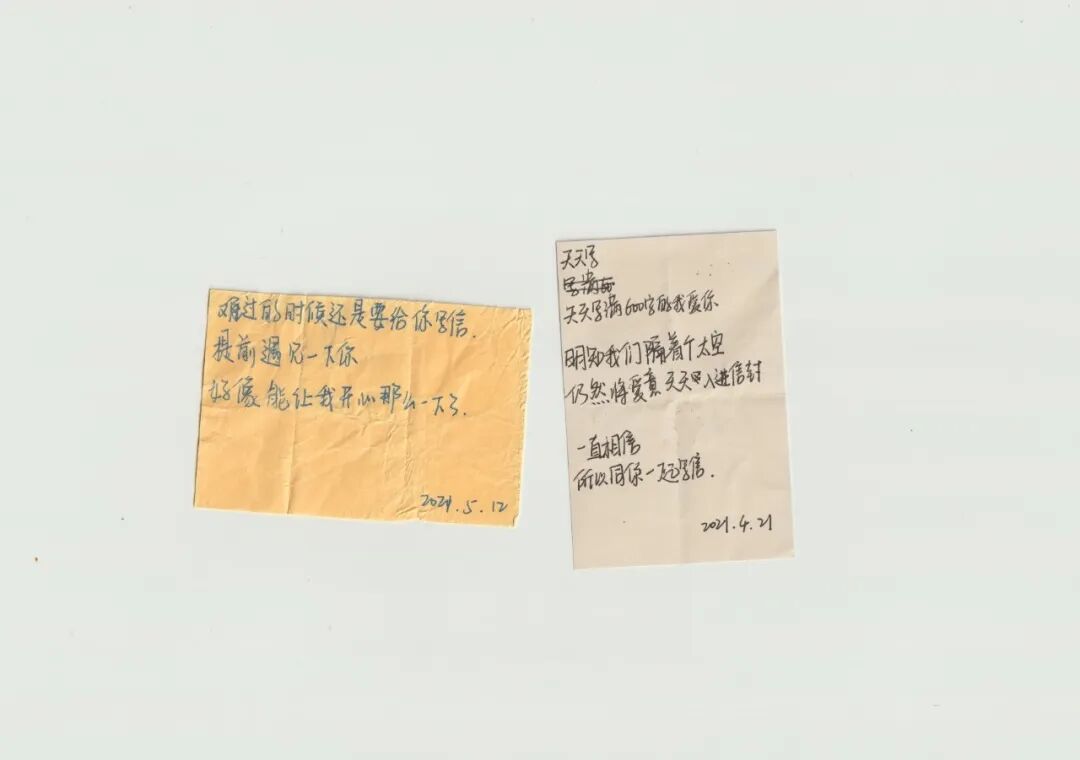 难过的时候还是要给你写信.
提前遇见一下你
好像能让我开心那么一下了.
2021.5.12
天天写
天天写满600字的我爱你
明知我们隔着个太空
仍然将爱意天天写入进信封
一直相信
所以同你一起写信.
2021.4.21